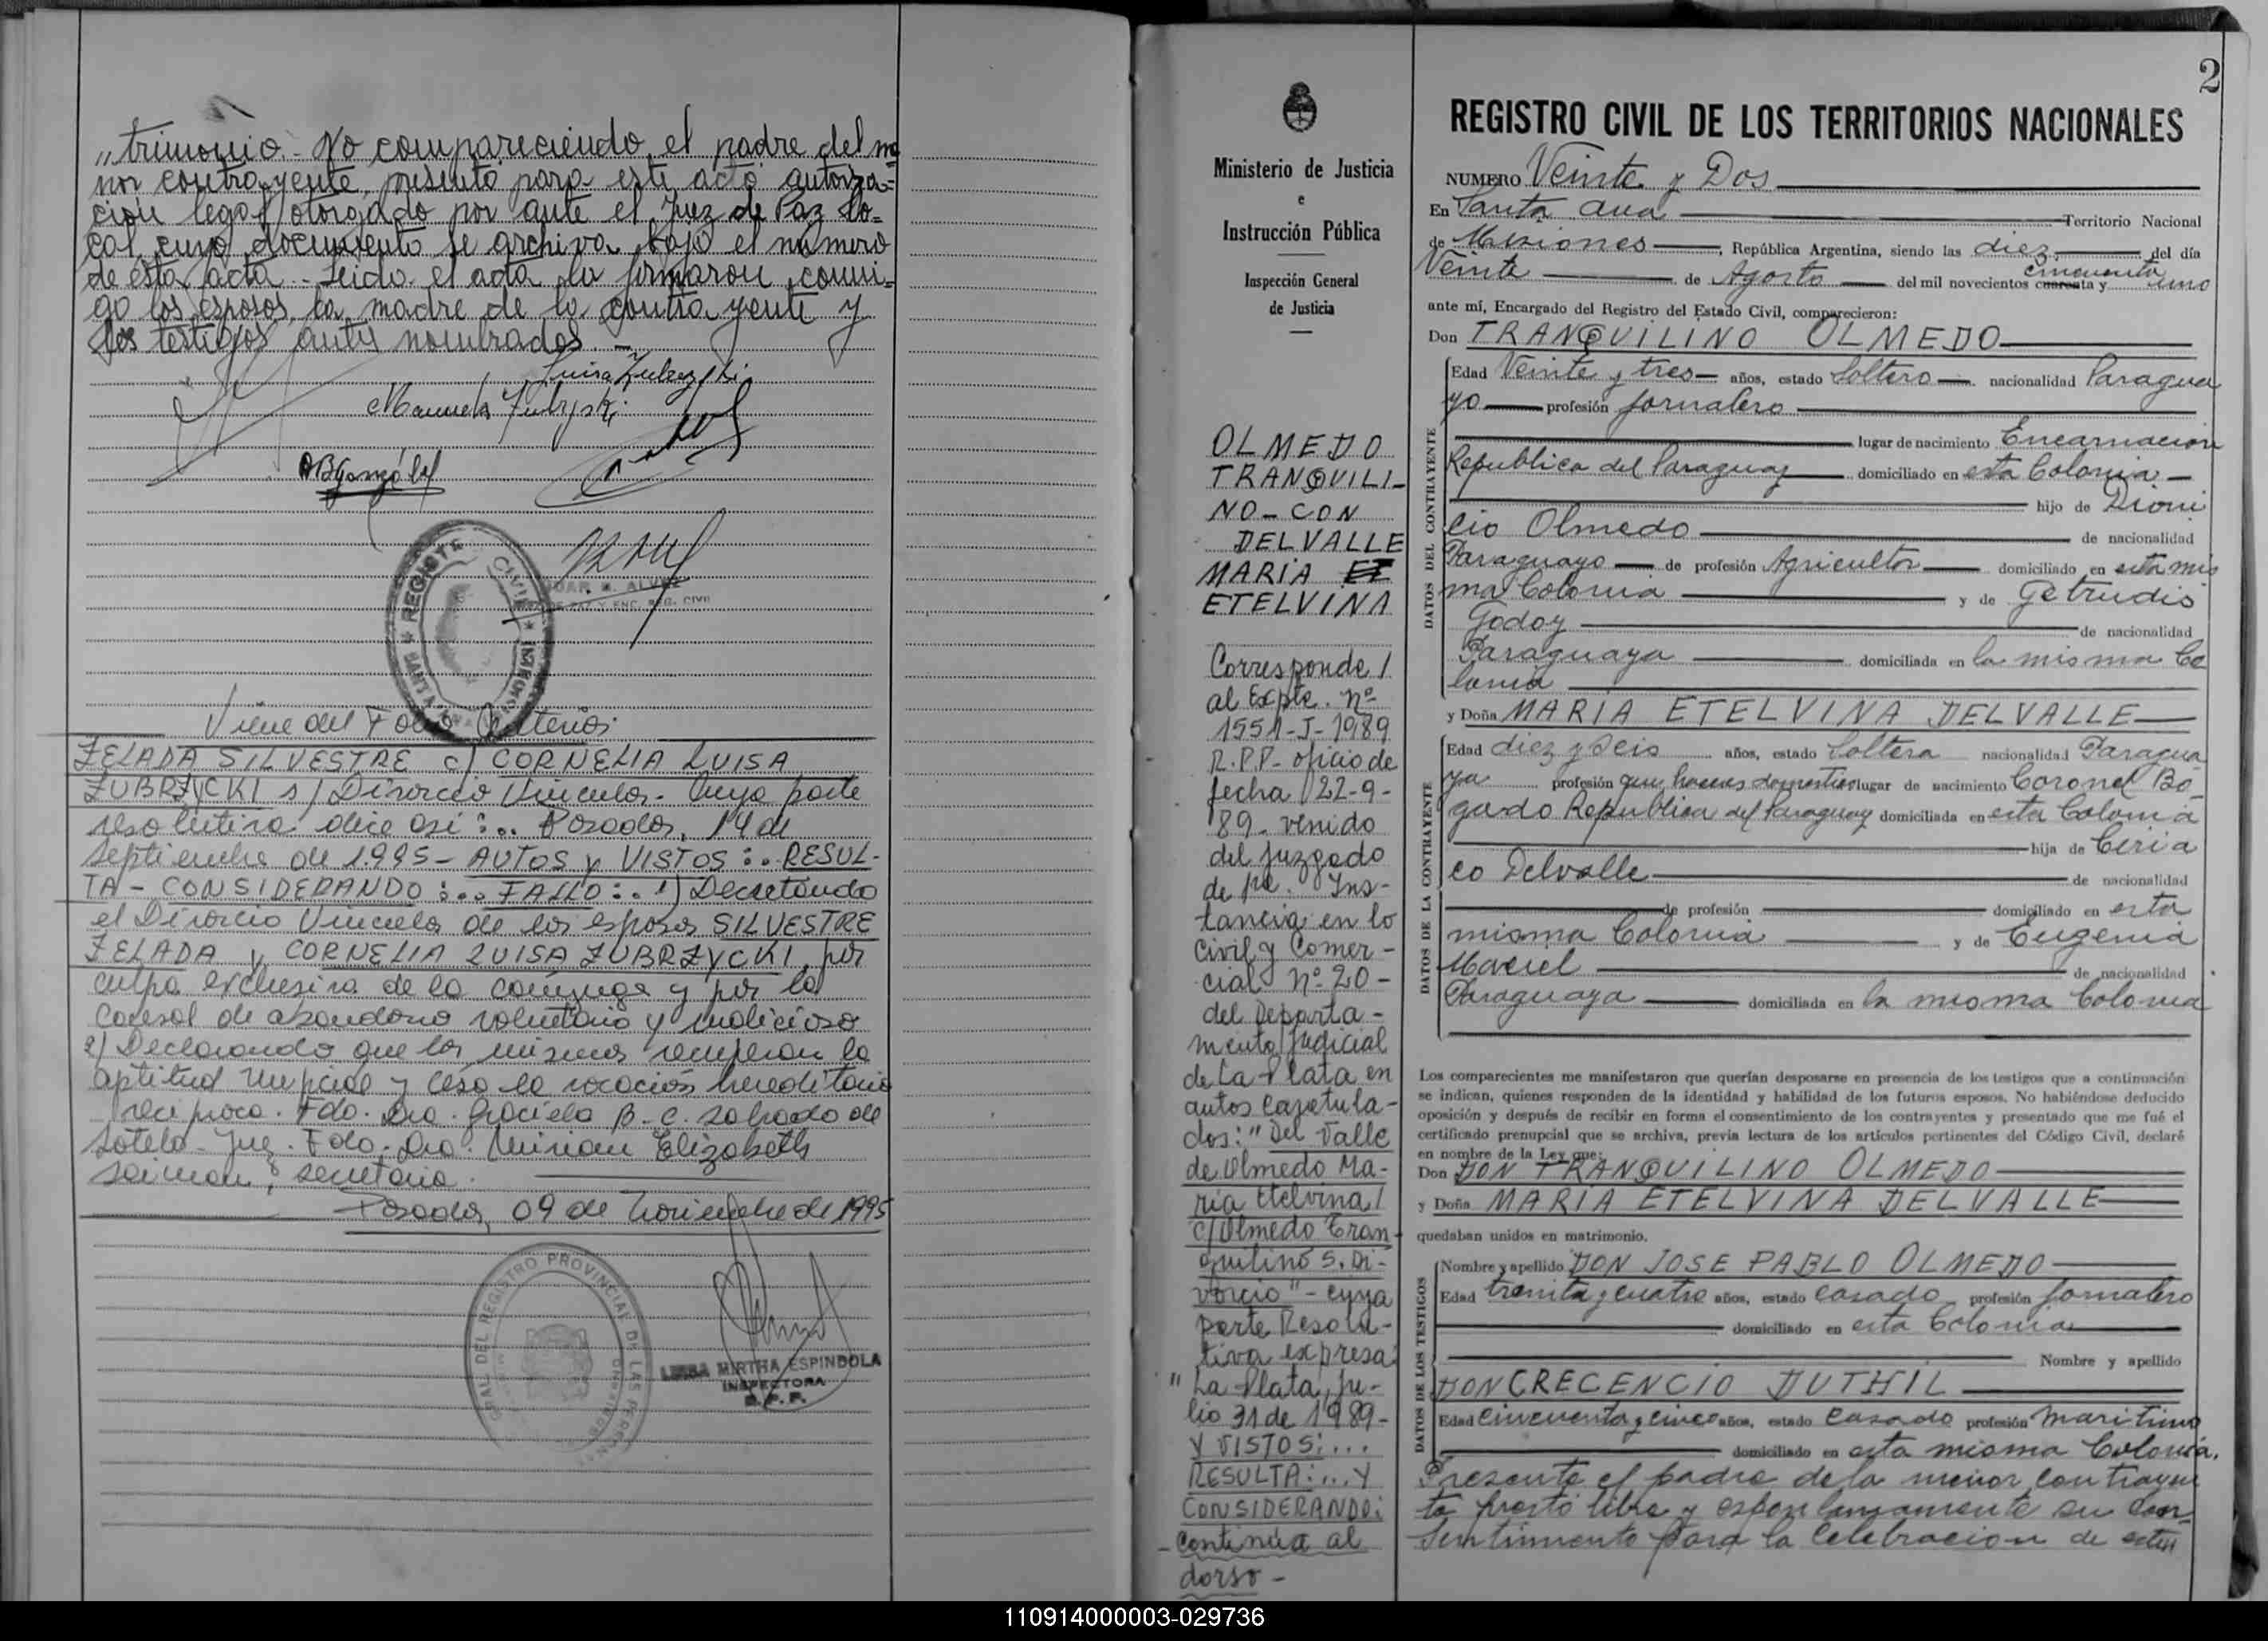 „trimonio.- No compareciendo el padre del me
nor contrayente, presento para este acto autoriza=
cion legal otorgado por ante el Juez de Paz Lo=
cal, cuyo documento se archiva bajo el numero
de esta acta.- Leido el acta la firmaron conmi=
go los esposos, la madre de la contrayente y
los testigos antes nombrados.-
Luisa Zubrzycki
Manuela Zubrzycki
REGISTRO CIVIL
SANTA ANA
MISIONES
Viene del Folio Anterior
ZELADA SILVESTRE c/ CORNELIA LUISA
ZUBRZYCKI s/ Divorcio Vincular- Cuya parte
resolutiva dice asi:.. Posadas, 14 de
Septiembre de 1.995- AUTOS y VISTOS:.. RESUL-
TA- CONSIDERANDO:.. FALLO:.. 1) Decretando
el Divorcio Vincular de los esposos SILVESTRE
ZELADA y CORNELIA LUISA ZUBRZYCKI, por
culpa exclusiva de la conyuge y por la
causal de abandono voluntario y malicioso
2) Declarando que los mismos recuperan la
aptitud nupcial y cesa la vocación hereditaria
reciproca. Fdo. Dra. Graciela B. C. Salgado de
Sotelo- Juez. Fdo. Dra. Miriam Elizabeth
secretaria.
Posadas, 09 de Noviembre de 1995
GRAL DEL REGISTRO PROVINCIAL DE LAS PERSONAS
MIRTHA ESPINDOLA
INSPECTORA
R.P.P.
Ministerio de Justicia
e
Instrucción Pública
Inspección General
de Justicia
OLMEDO
TRANQUILI-
NO-CON
DELVALLE
MARIA ET
ETELVINA
Corresponde/
al Expte. Nº
1551-J-1989
R.P.P- oficio de
fecha 22-9-
89- venido
del Juzgado
de 1ra. Ins-
tancia en lo
Civil y Comer-
cial Nº 20-
del Departa-
mento Judicial
de La Plata en
autos Caratula-
dos: "Del Valle
de Olmedo Ma-
ría Etelvina/
c/Olmedo Tran-
quilino S. Di-
vorcio"- cuya
parte Resolu-
tiva expresa:
"La Plata, Ju-
lio 31 de 1989-
Y VISTOS:...
RESULTA:...Y
CONSIDERANDO:
-Continúa al
dorso-
2
REGISTRO CIVIL DE LOS TERRITORIOS NACIONALES
NUMERO Veinte y Dos
En Santa Ana Territorio Nacional
de Misiones, República Argentina, siendo las diez del día
Veinte de Agosto del mil novecientos cuarenta y cincuenta uno
ante mí, Encargado del Registro del Estado Civil, comparecieron:
Don TRANQUILINO OLMEDO
DATOS DEL CONTRAYENTE
Edad Veinte y tres años, estado Soltero nacionalidad Paragua
yo profesión Jornalero
lugar de nacimiento Encarnación
Republica del Paraguay domiciliado en esta Colonia
hijo de Dioni
cio Olmedo de nacionalidad
Paraguayo de profesión Agricultor domiciliado en esta mis
ma Colonia y de Getrudis
Godoy de nacionalidad
Paraguaya domiciliada en la misma Co
lonia
y Doña MARIA ETELVINA DELVALLE
DATOS DE LA CONTRAYENTE
Edad diez y seis años, estado Soltera nacionalidad Paragua
ya profesión que haceres domesticos lugar de nacimiento Coronel Bo-
gado Republica del Paraguay domiciliada en esta Colonia
hija de Ciria
co Delvalle de nacionalidad
de profesión domiciliado en esta
misma Colonia y de Eugenia
Maciel de nacionalidad
Paraguaya domiciliada en la misma Colonia
Los comparecientes me manifestaron que querían desposarse en presencia de los testigos que a continuación
se indican, quienes responden de la identidad y habilidad de los futuros esposos. No habiéndose deducido
oposición y después de recibir en forma el consentimiento de los contrayentes y presentado que me fué el
certificado prenupcial que se archiva, previa lectura de los artículos pertinentes del Código Civil, declaré
en nombre de la Ley que:
Don DON TRANQUILINO OLMEDO
y Doña MARIA ETELVINA DELVALLE
quedaban unidos en matrimonio.
DATOS DE LOS TESTIGOS
Nombre y apellido DON JOSE PABLO OLMEDO
Edad treinta y cuatro años, estado casado profesión Jornalero
domiciliado en esta Colonia
Nombre y apellido
DON CRECENCIO DUTHIL
Edad Cincuenta y cinco años, estado Casado profesión maritimo
domiciliado en esta misma Colonia.
Presente el padre de la menor contrayen
te presto libre y espontaneamente su con-
sentimiento para la celebracion de este„
110914000003-029736